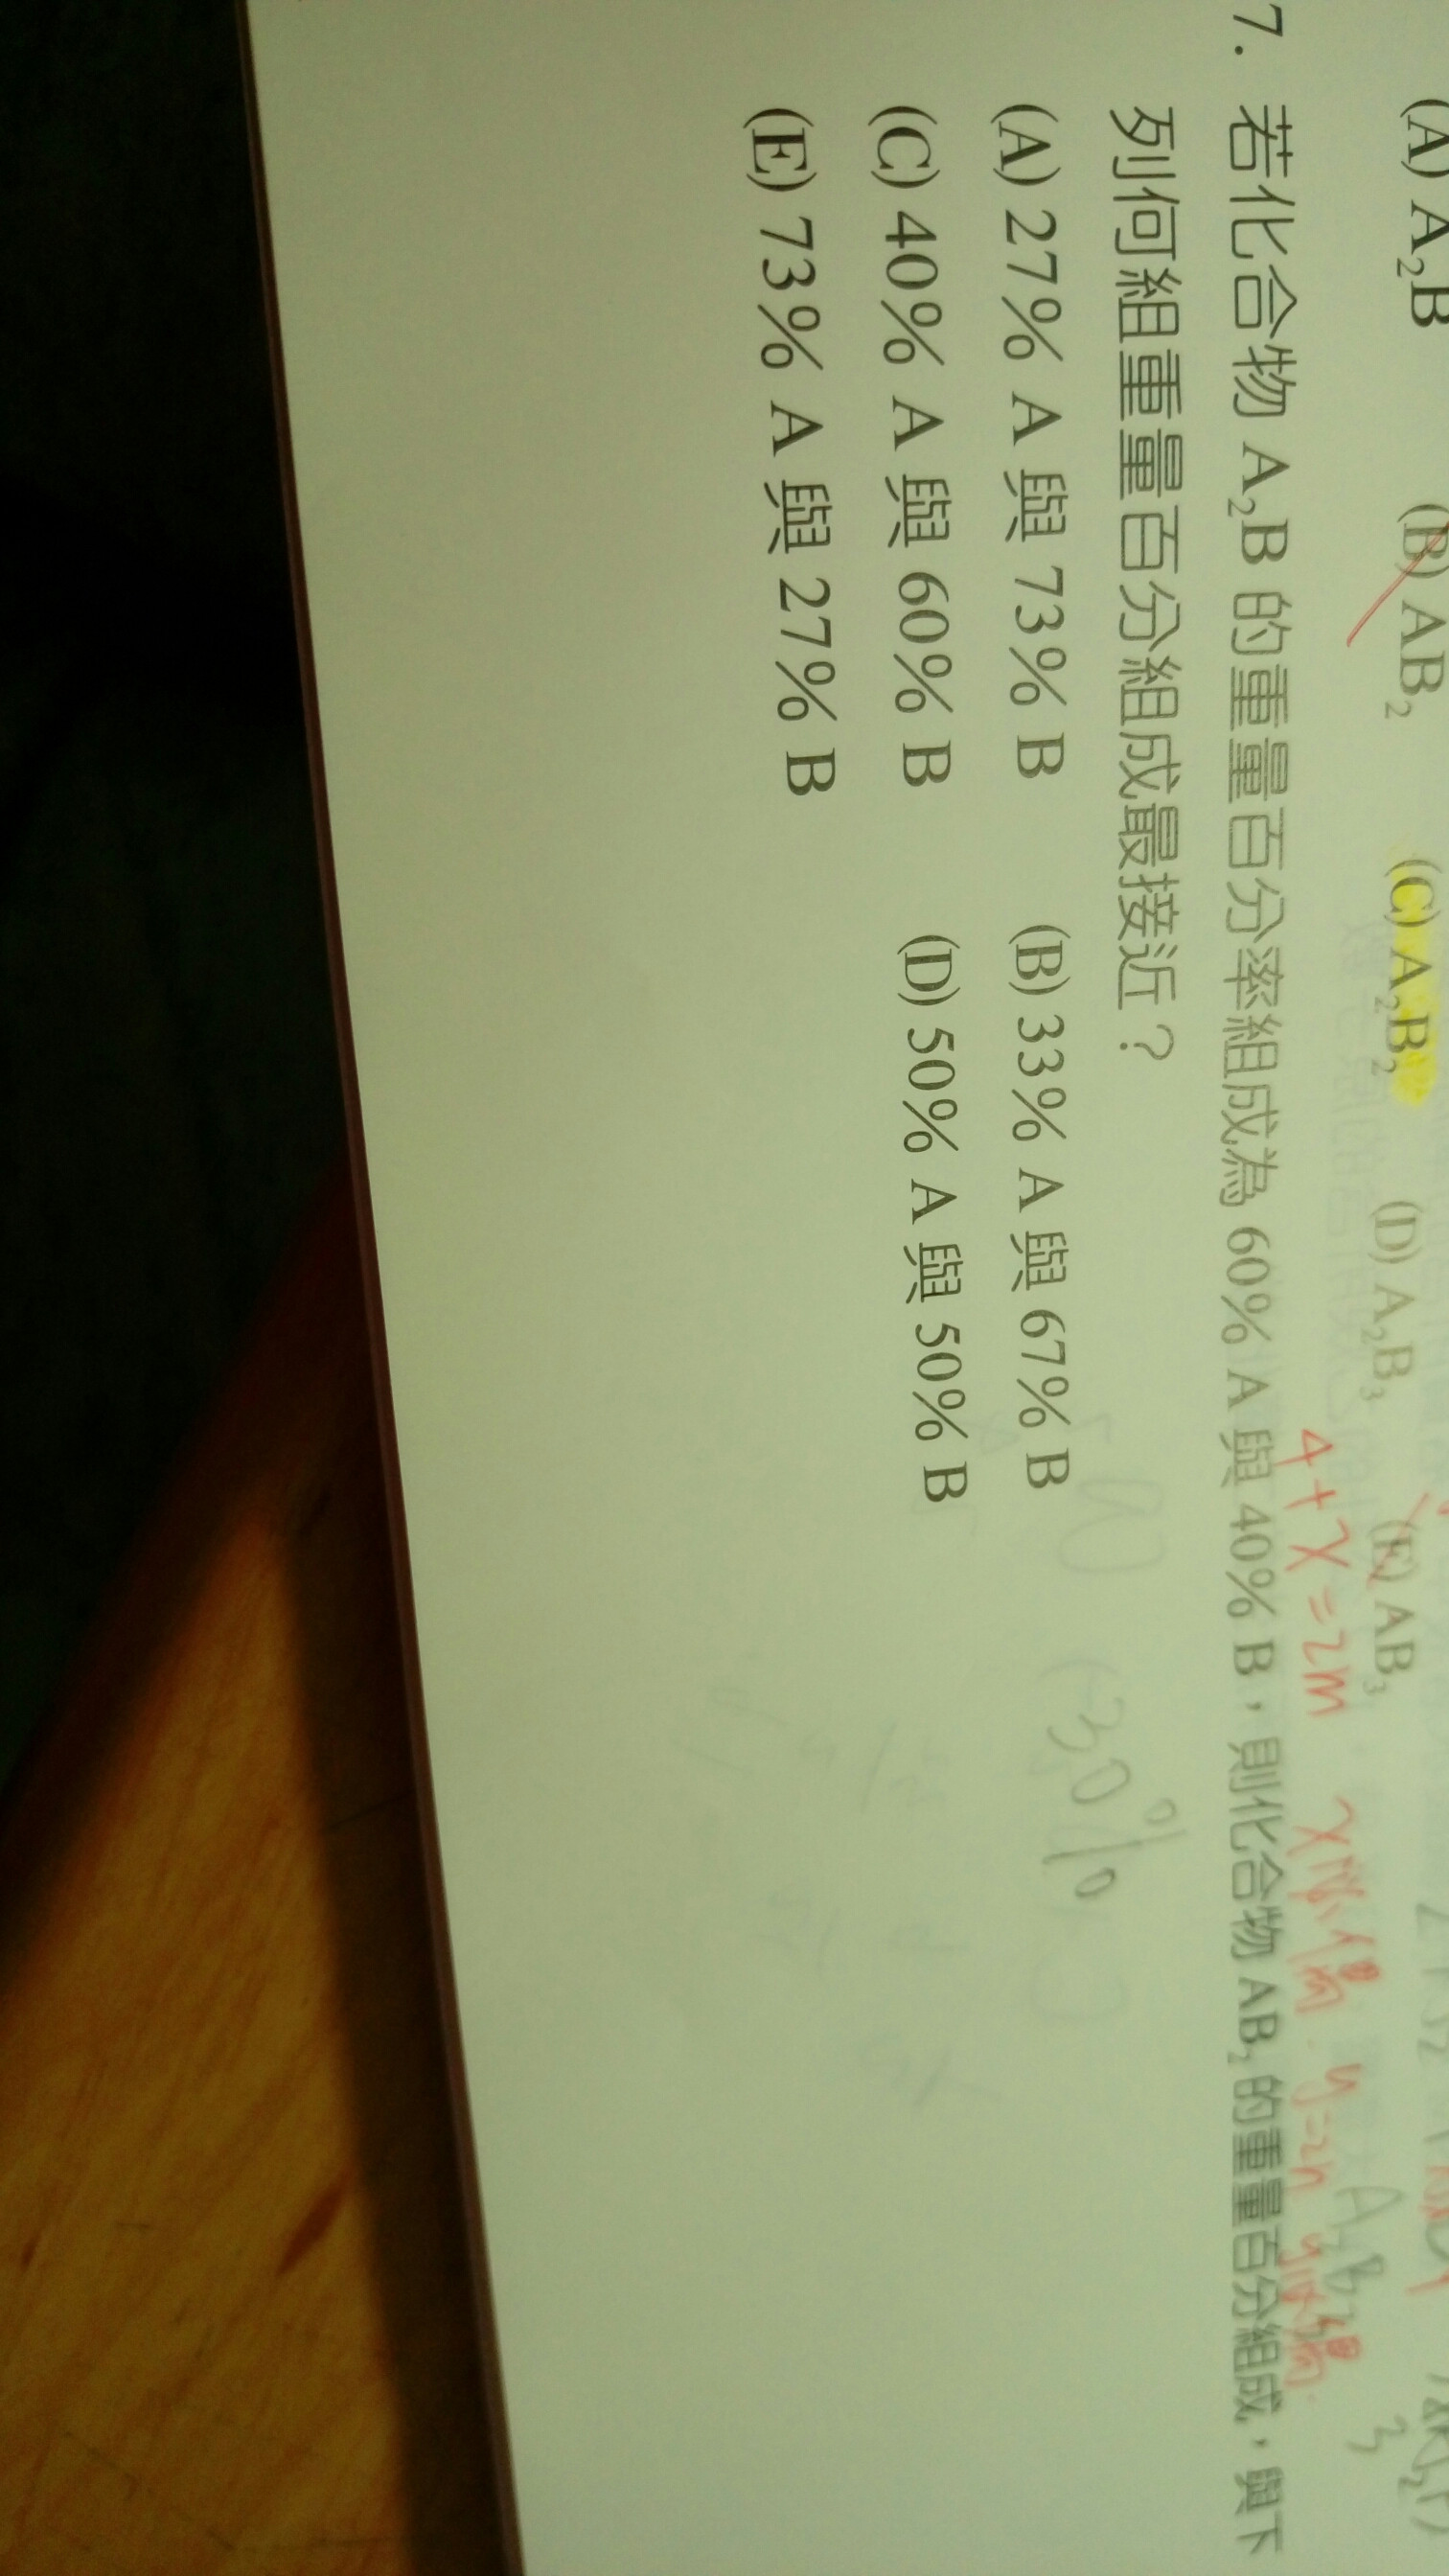 (A) A₂B (B) AB₂ (C) A₂B₂ (D) A₂B₃ (E) AB₃
4+x=2m
7. 若化合物 A₂B 的重量百分率組成為 60% A 與 40% B,則化合物 AB₂ 的重量百分組成,與下
列何組重量百分組成最接近?
(A) 27% A 與 73% B (B) 33% A 與 67% B
(C) 40% A 與 60% B (D) 50% A 與 50% B
(E) 73% A 與 27% B